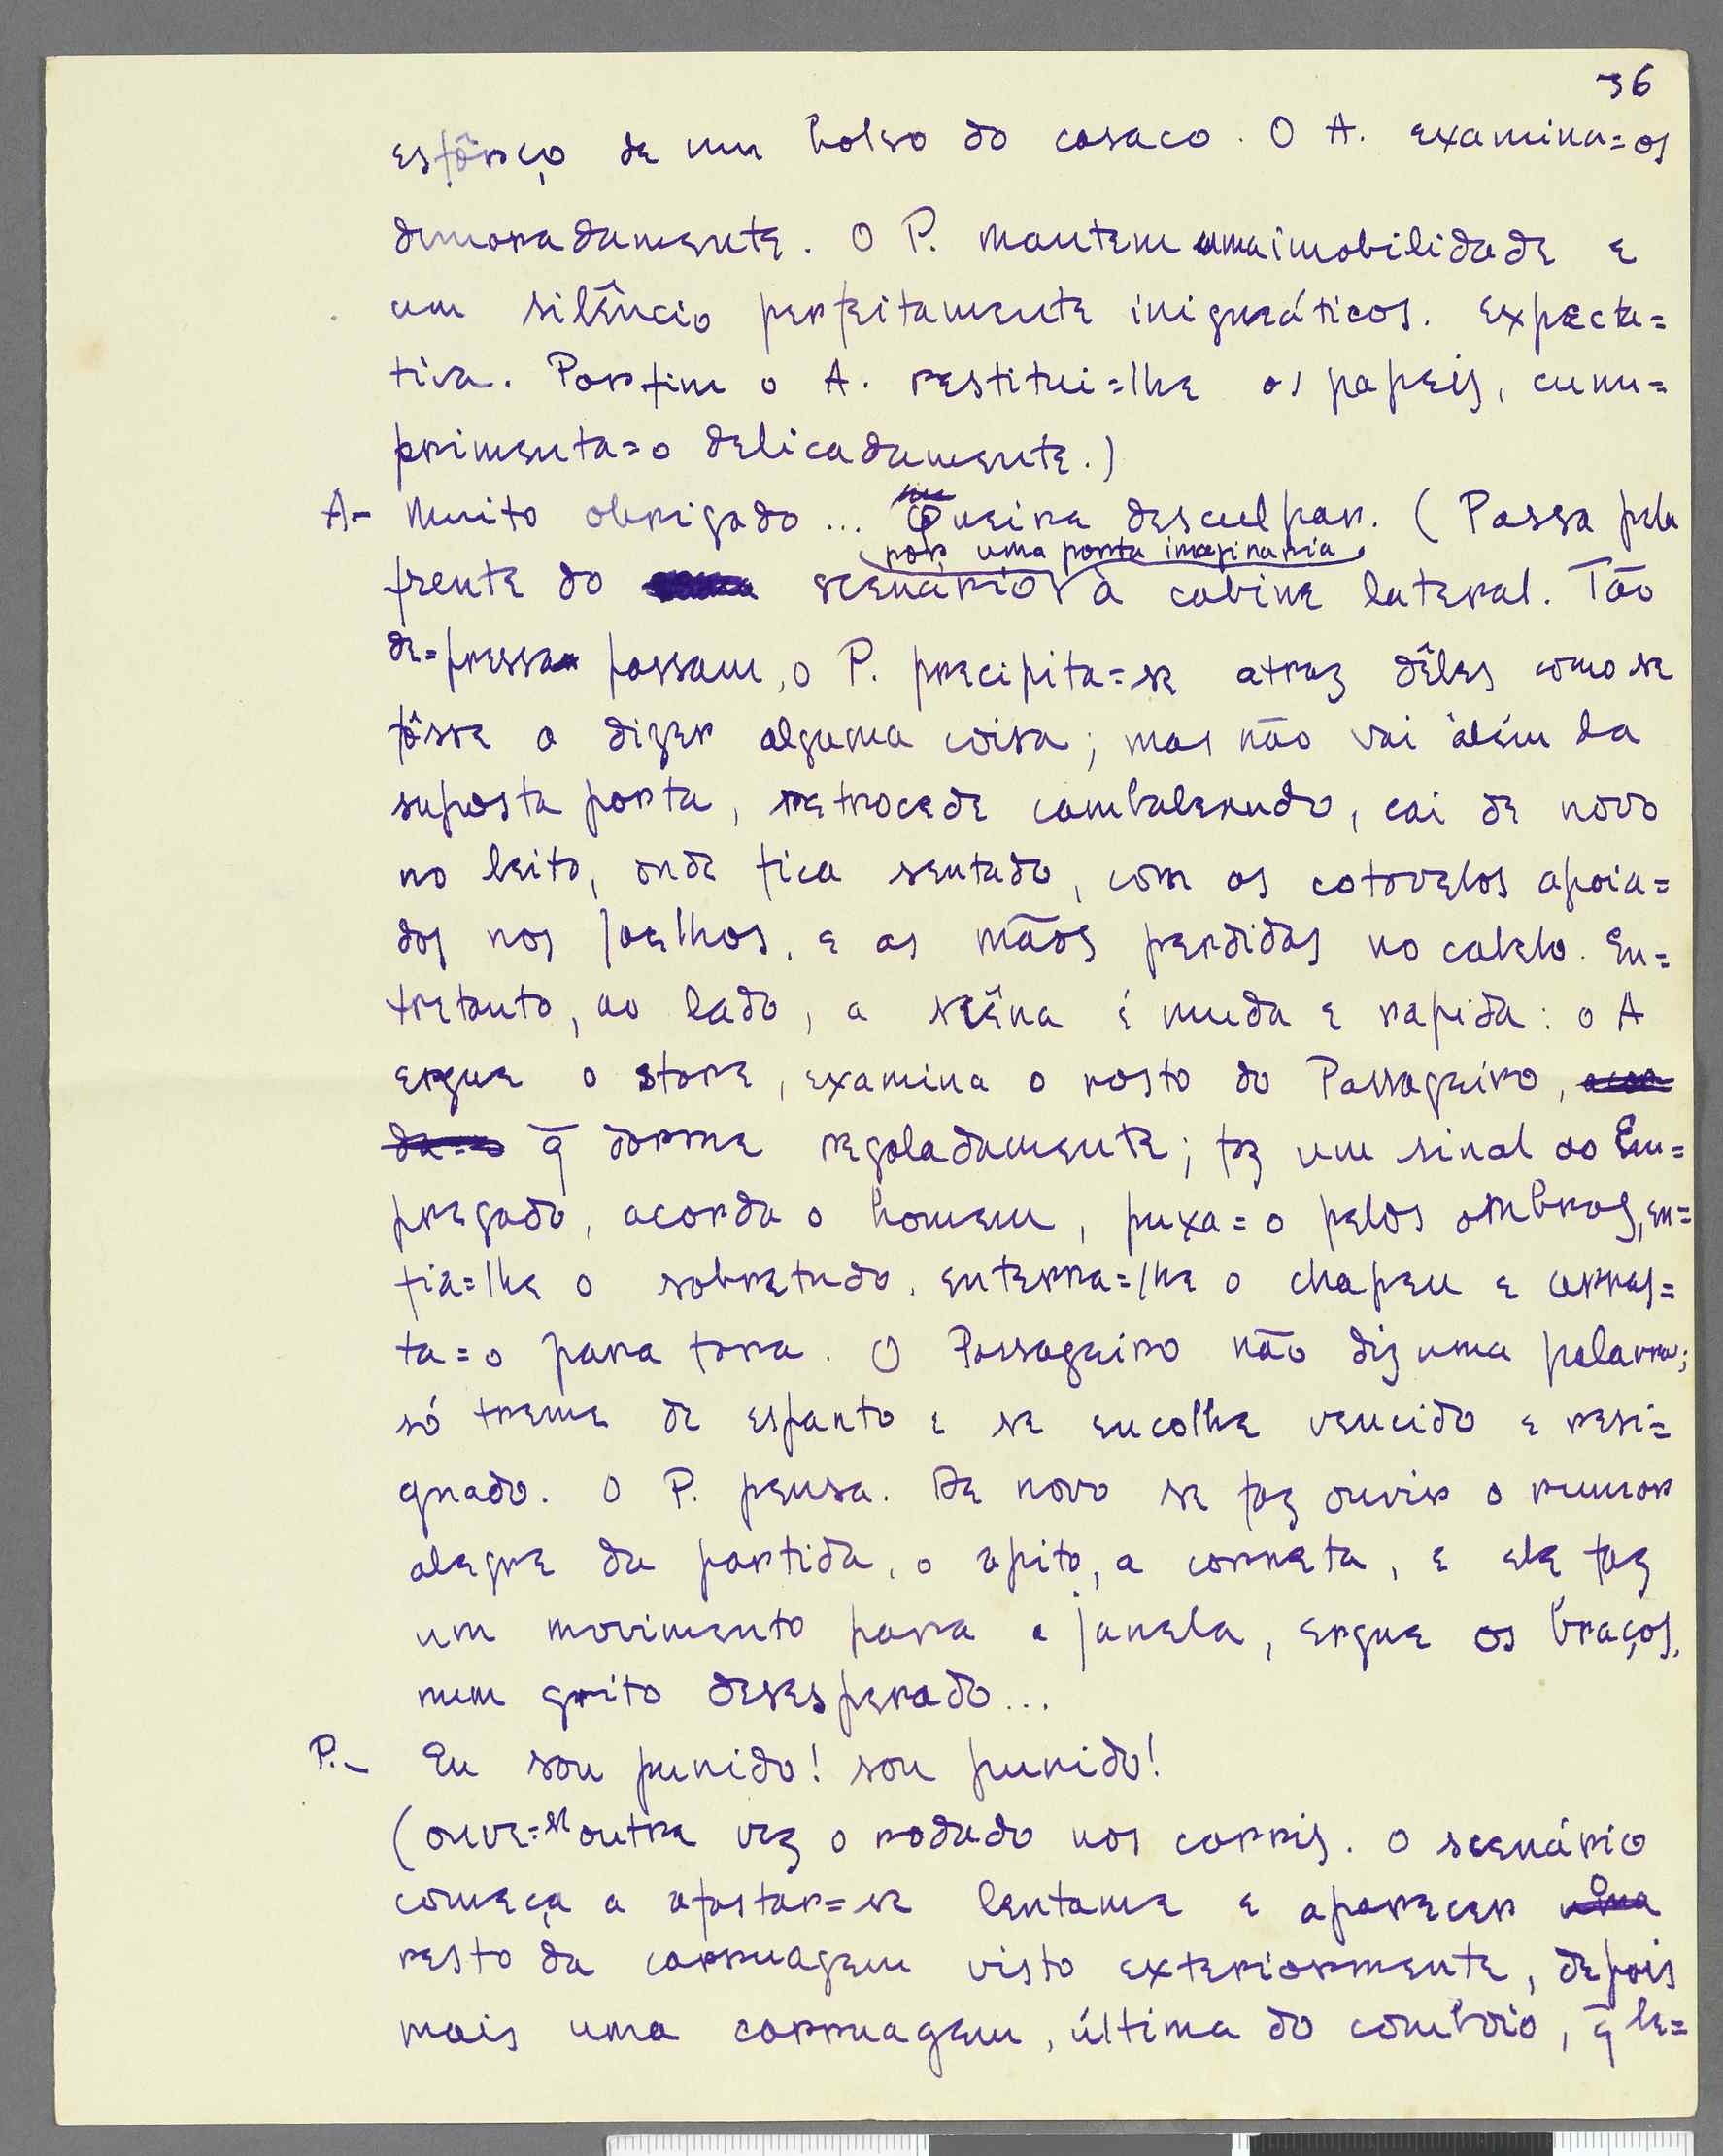 36
esfôrço de um bolso do casaco. O A. examina=os
demoradamente. O P. mantem uma imobilidade e
um silêncio perfeitamente inigmáticos. Expecta=
tiva. Porfim o A. restitui=lhe os papeis, cum=
primenta=o delicadamente.)
A- Muito obrigado... Queira desculpar. (Passa pela
por uma porta imaginaria
frente do scenário à cabine lateral. Tão
de=pressa passam, o P. precipita=se atraz dêles como se
fôsse a dizer alguma coisa; mas não vai àlém da
suposta porta, retrocede cambaleando, cai de novo
no leito, onde fica sentado, com os cotovelos apoia=
dos nos joelhos, e as mãos perdidas no cabelo. En=
tretanto, ao lado, a scêna é muda e rapida: o A
ergue o store, examina o rosto do Passageiro, acor
da=o q̃ dorme regaladamente; faz um sinal ao Em=
pregado, acorda o homem, puxa=o pelos ombros, en=
fia=lhe o sobretudo, enterra=lhe o chapeu e arras=
ta=o para fora. O Passageiro não diz uma palavra;
só treme de espanto e se encolhe vencido e resi=
gnado. O P. pensa. De novo se faz ouvir o rumor
alegre da partida, o apito, a corneta, e ele faz
um movimento para a janela, ergue os braços,
num grito desesperado...
P.- Eu sou punido! sou punido!
(ouve=se outra vez o rodado nos carris. O scenário
começa a afastar=se lentame e aparecer o
resto da carruagem visto exteriormente, depois
mais uma carruagem, última do comboio, q̃ le=